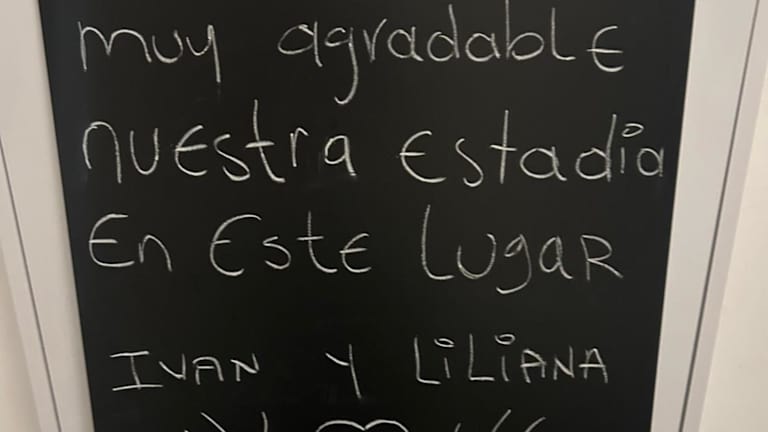 muy agradable
nuestra Estadia
En Este Lugar
IVAN Y LILIANA